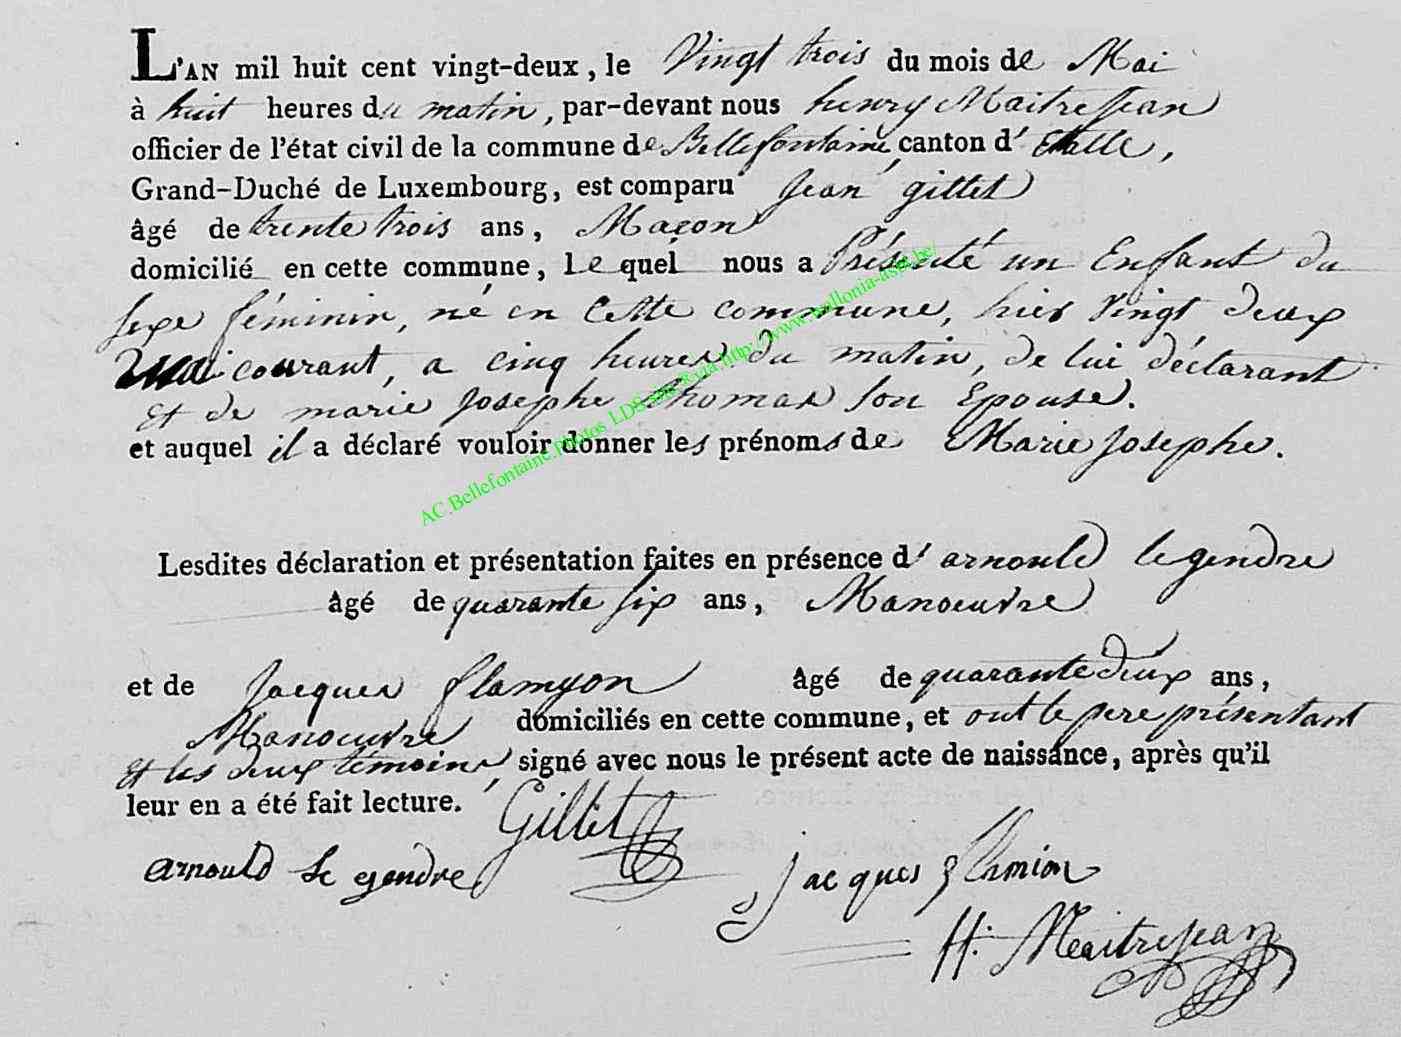 L'AN mil huit cent vingt-deux, le Vingt trois du mois de Mai
à huit heures du matin, par-devant nous henry Maitrejean
officier de l'état civil de la commune de Bellefontaine, canton d'Etalle,
Grand-Duché de Luxembourg, est comparu Jean gillet
âgé de trente trois ans, Maçon
domicilié en cette commune, Lequel nous a Présenté un Enfant du
sexe féminin, né en Cette commune, hier vingt deux
mai courant, a cinq heures du matin, de lui déclarant
et de marie Josephe thomas son Epouse.
et auquel il a déclaré vouloir donner les prénoms de Marie Josephe.
AC.Bellefontaine.Photos LDS via http://www.wallonia-asbl.be/
Lesdites déclaration et présentation faites en présence d'arnould legendre
âgé de quarante six ans, Manoeuvre
et de Jacques flamyon âgé de quarante deux ans,
Manoeuvre domiciliés en cette commune, et ont le pere présentant
et les deux témoins, signé avec nous le présent acte de naissance, après qu'il
leur en a été fait lecture.
Gillet
arnould Le gendre
jacques flamion
H. Maitrejean